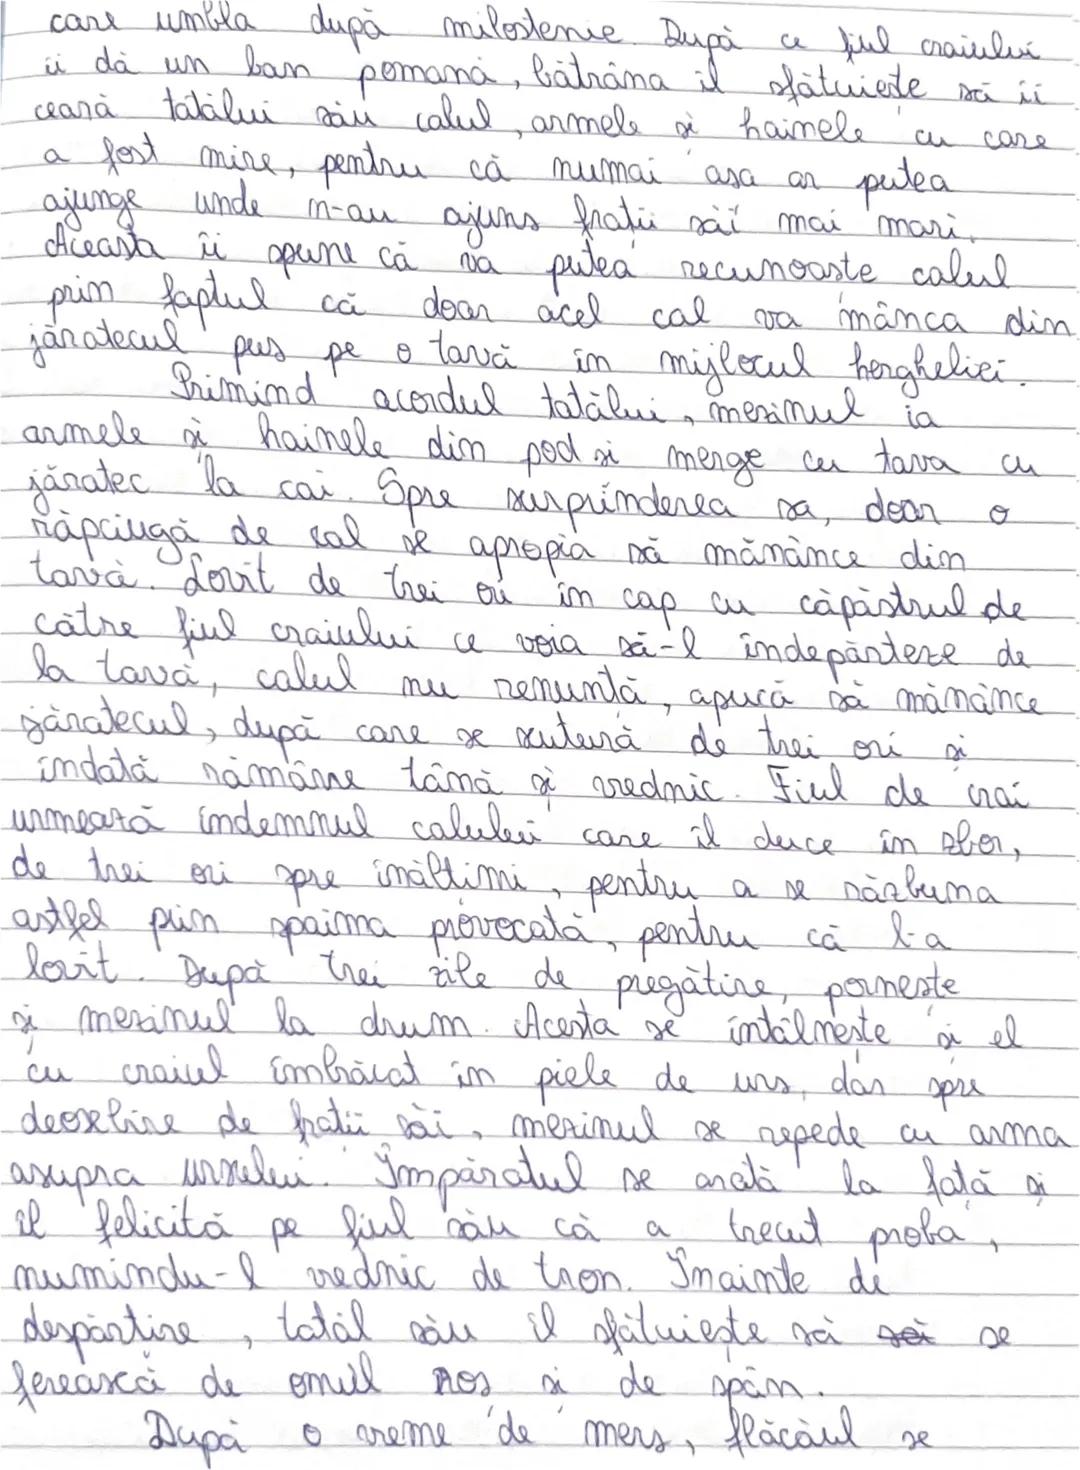 care umbla după milostenie. După ce fiul craiului
îi dă un ban pomană, bătrâna îl sfătuiește să îi
ceară tatălui său calul, armele și hainele cu care
a fost mire, pentru că numai așa ar putea
ajunge unde n-au ajuns frații săi mai mari.
Aceasta îi spune că va putea recunoaște calul
prin faptul că doar acel cal va mânca din
jăratecul pus pe o tavă în mijlocul hergheliei.
Primind acordul tatălui, mezinul ia
armele și hainele din pod și merge cu tava cu
jăratec la cai. Spre surprinderea sa, doar o
răpciugă de cal se apropia să mănânce din
tavă. Lovit de trei ori în cap cu căpăstrul de
către fiul craiului ce voia să-l îndepărteze de
la tavă, calul nu renunță, apucă să mănânce
jăratecul, după care se scutură de trei ori și
îndată rămâne tână și vrednic. Fiul de crai
urmează îndemnul calului care îl duce în zbor,
de trei ori spre înălțimi, pentru a se răzbuna
astfel prin spaima provocată, pentru că l-a
lovit. După trei zile de pregătire, pornește
și mezinul la drum. Acesta se întâlnește și el
cu craiul îmbrăcat în piele de urs, dar spre
deosebire de frații săi, mezinul se repede cu arma
asupra ursului. Împăratul se arată la față și
îl felicită pe fiul său că a trecut proba,
numindu-l vrednic de tron. Înainte de
despărțire, tatăl său îl sfătuiește să se
ferească de omul roș și de spân.
După o vreme de mers, flăcăul se